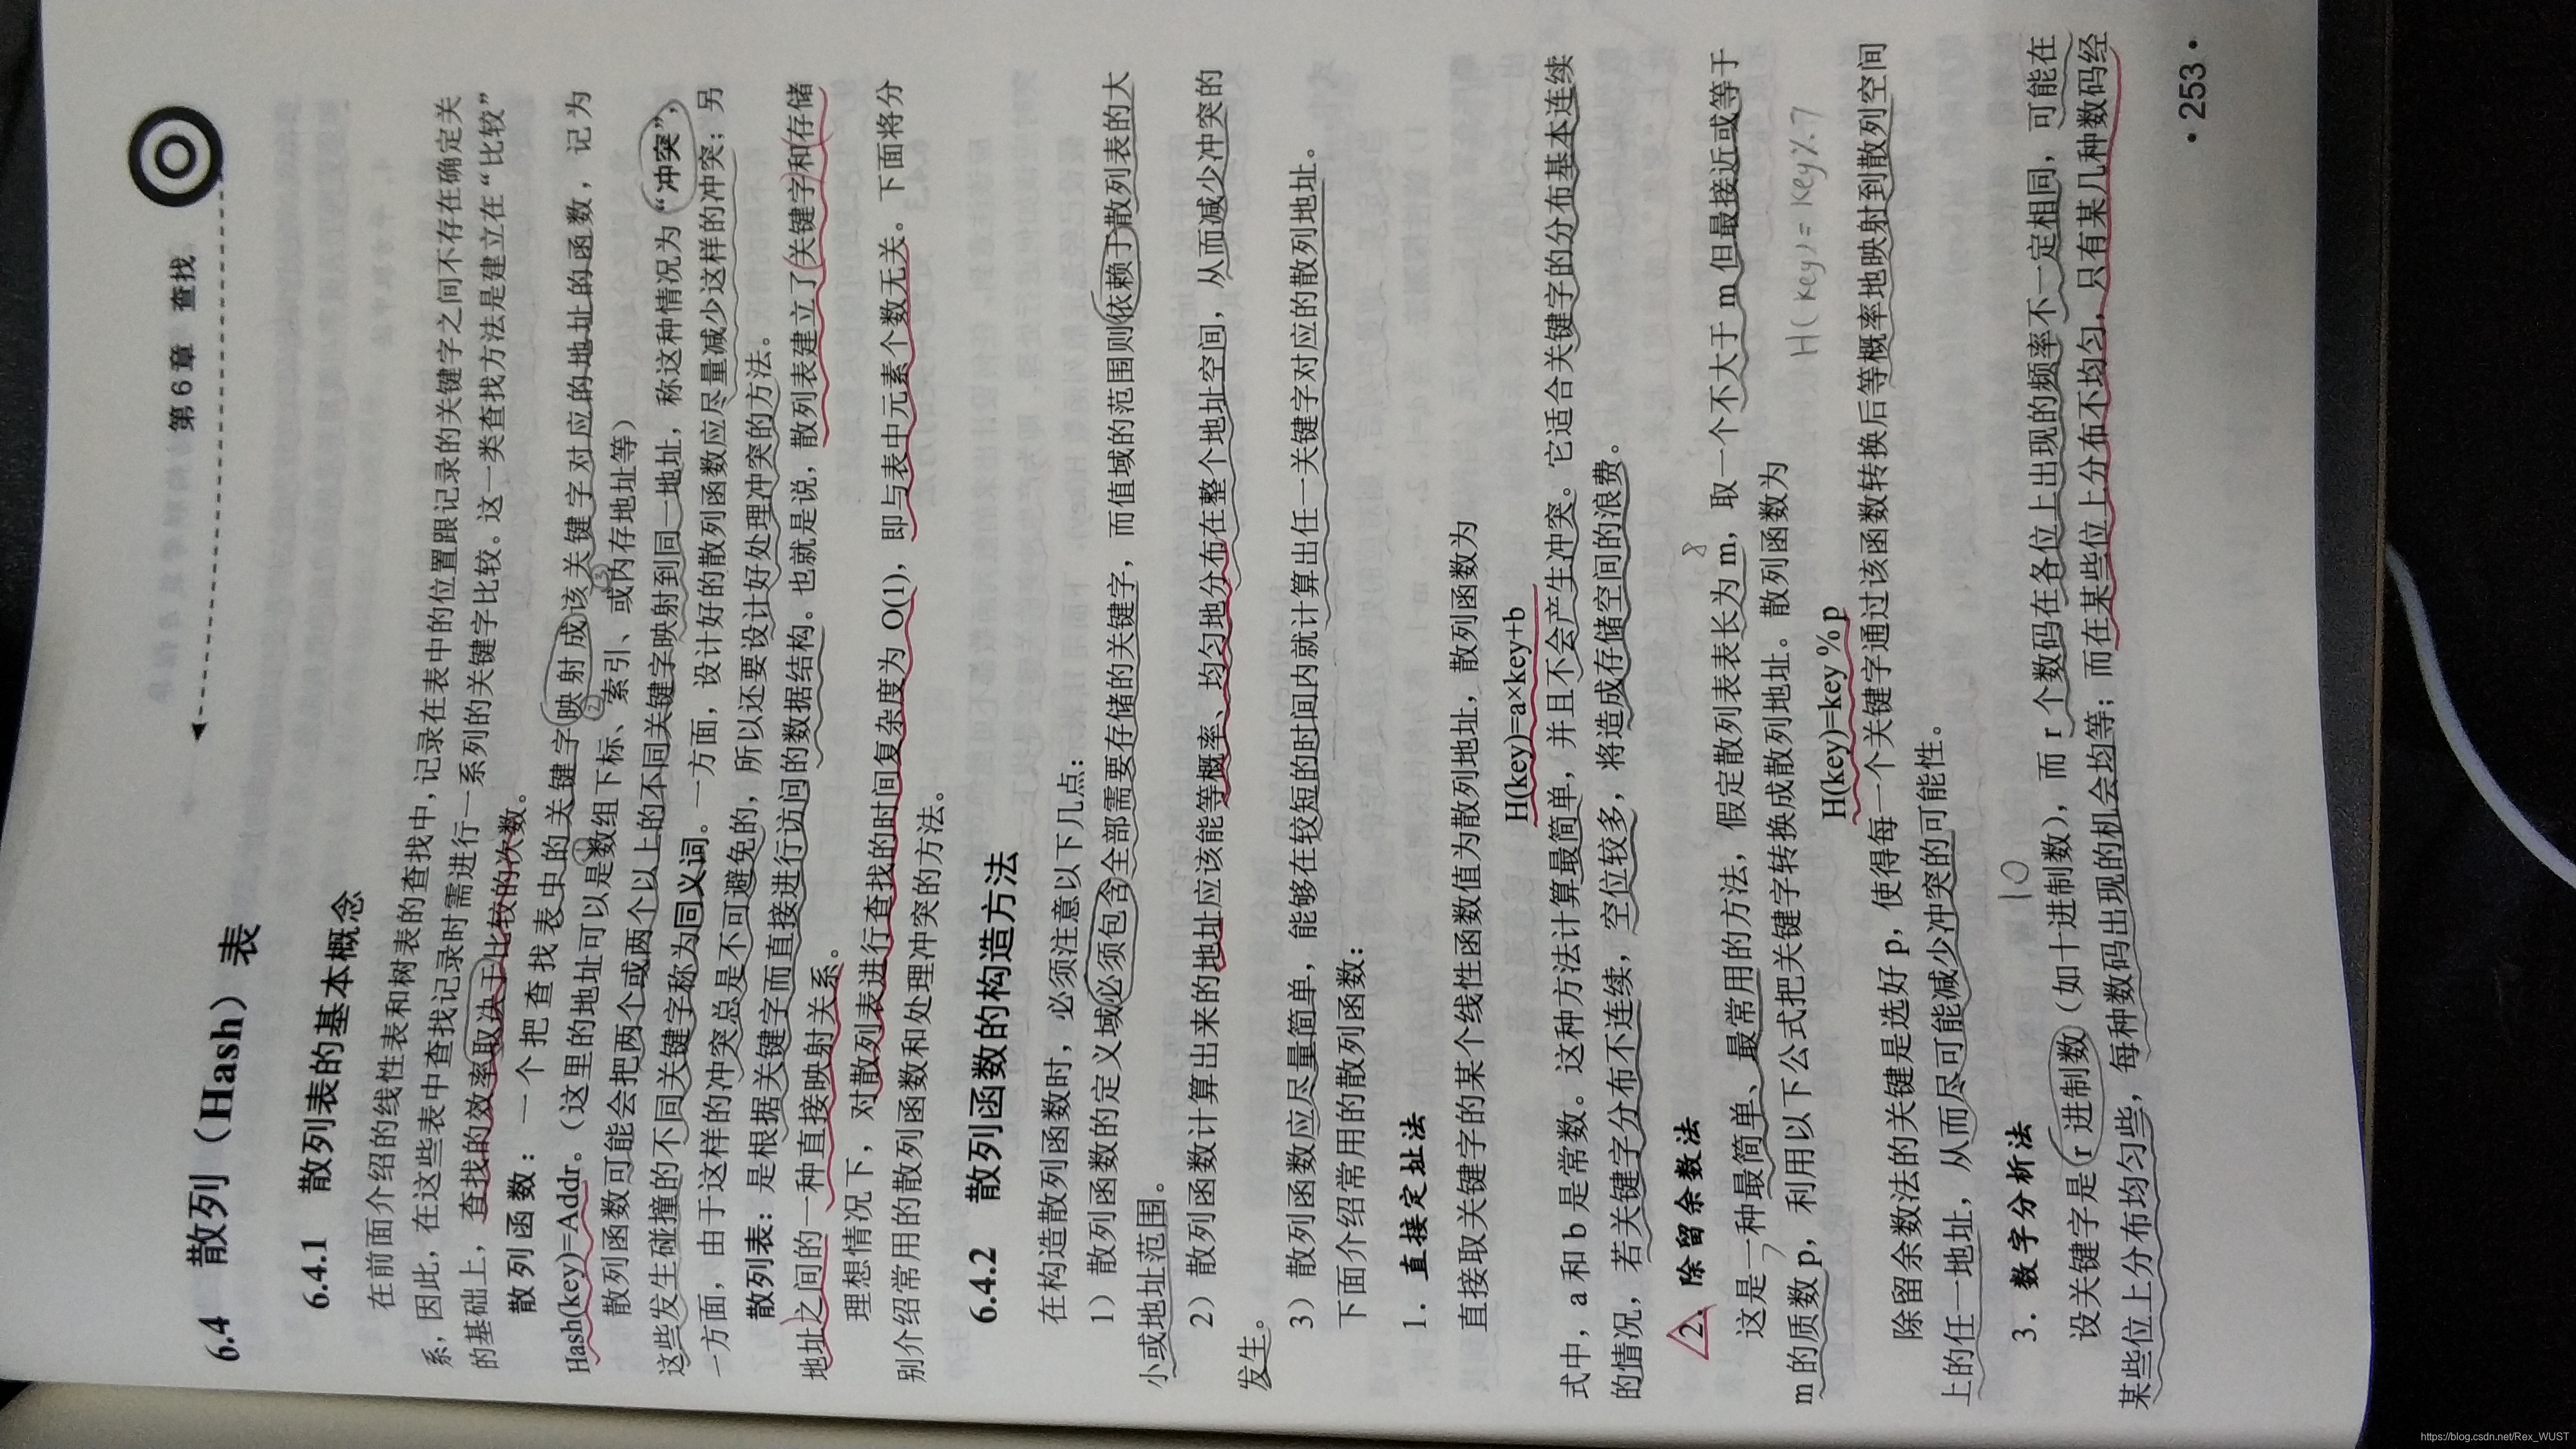 第 6 章 查找
6.4 散列（Hash）表
6.4.1 散列表的基本概念
在前面介绍的线性表和树表的查找中,记录在表中的位置跟记录的关键字之间不存在确定关
系,因此,在这些表中查找记录时需进行一系列的关键字比较。这一类查找方法是建立在“比较”
的基础上，查找的效率取决于比较的次数。
散列函数：一个把查找表中的关键字映射成该关键字对应的地址的函数，记为
Hash(key)=Addr。（这里的地址可以是数组下标、索引、或内存地址等）
① ② ③
散列函数可能会把两个或两个以上的不同关键字映射到同一地址，称这种情况为“冲突”，
这些发生碰撞的不同关键字称为同义词。一方面，设计好的散列函数应尽量减少这样的冲突；另
一方面，由于这样的冲突总是不可避免的，所以还要设计好处理冲突的方法。
散列表：是根据关键字而直接进行访问的数据结构。也就是说，散列表建立了关键字和存储
地址之间的一种直接映射关系。
理想情况下，对散列表进行查找的时间复杂度为 O(1)，即与表中元素个数无关。下面将分
别介绍常用的散列函数和处理冲突的方法。
6.4.2 散列函数的构造方法
在构造散列函数时，必须注意以下几点：
1）散列函数的定义域必须包含全部需要存储的关键字，而值域的范围则依赖于散列表的大
小或地址范围。
2）散列函数计算出来的地址应该能等概率、均匀地分布在整个地址空间，从而减少冲突的
发生。
3）散列函数应尽量简单，能够在较短的时间内就计算出任一关键字对应的散列地址。
下面介绍常用的散列函数：
1．直接定址法
直接取关键字的某个线性函数值为散列地址，散列函数为
H(key)=a×key+b
式中，a 和 b 是常数。这种方法计算最简单，并且不会产生冲突。它适合关键字的分布基本连续
的情况，若关键字分布不连续，空位较多，将造成存储空间的浪费。
2．除留余数法
8
这是一种最简单、最常用的方法，假定散列表表长为 m，取一个不大于 m 但最接近或等于
7
m 的质数 p，利用以下公式把关键字转换成散列地址。散列函数为
H(key)=key%7
H(key)=key % p
除留余数法的关键是选好 p，使得每一个关键字通过该函数转换后等概率地映射到散列空间
上的任一地址，从而尽可能减少冲突的可能性。
10
3．数字分析法
设关键字是 r 进制数（如十进制数），而 r 个数码在各位上出现的频率不一定相同，可能在
某些位上分布均匀些，每种数码出现的机会均等；而在某些位上分布不均匀，只有某几种数码经
• 253 •
https://blog.csdn.net/Rex_WUST